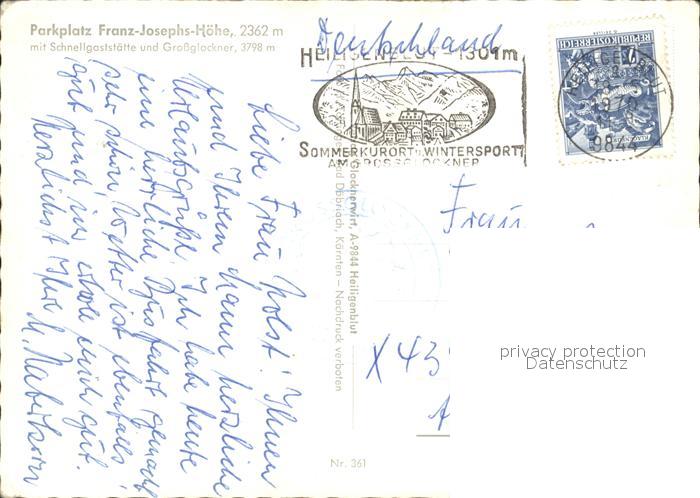 Parkplatz Franz-Josephs-Höhe, 2362 m
mit Schnellgaststätte und Großglockner, 3798 m
Deutschland
HEILIGENBLUT 1301m
SOMMERKURORT u. WINTERSPORT
AM GROSSGLOCKNER
REPUBLIK ÖSTERREICH
9844
Liebe Frau Holst! Ihnen
und Ihrem Mann herzliche
Urlaubsgrüße. Ich habe heute
eine herrliche Ausfahrt gemacht
sehr schön Wetter ist ebenfalls
gut und ich erhole mich gut.
Herzlichst Ihre M.
Glocknerwirt, A-9844 Heiligenblut
Döbriach, Kärnten – Nachdruck verboten
Frau
X 43
Nr. 361
privacy protection
Datenschutz